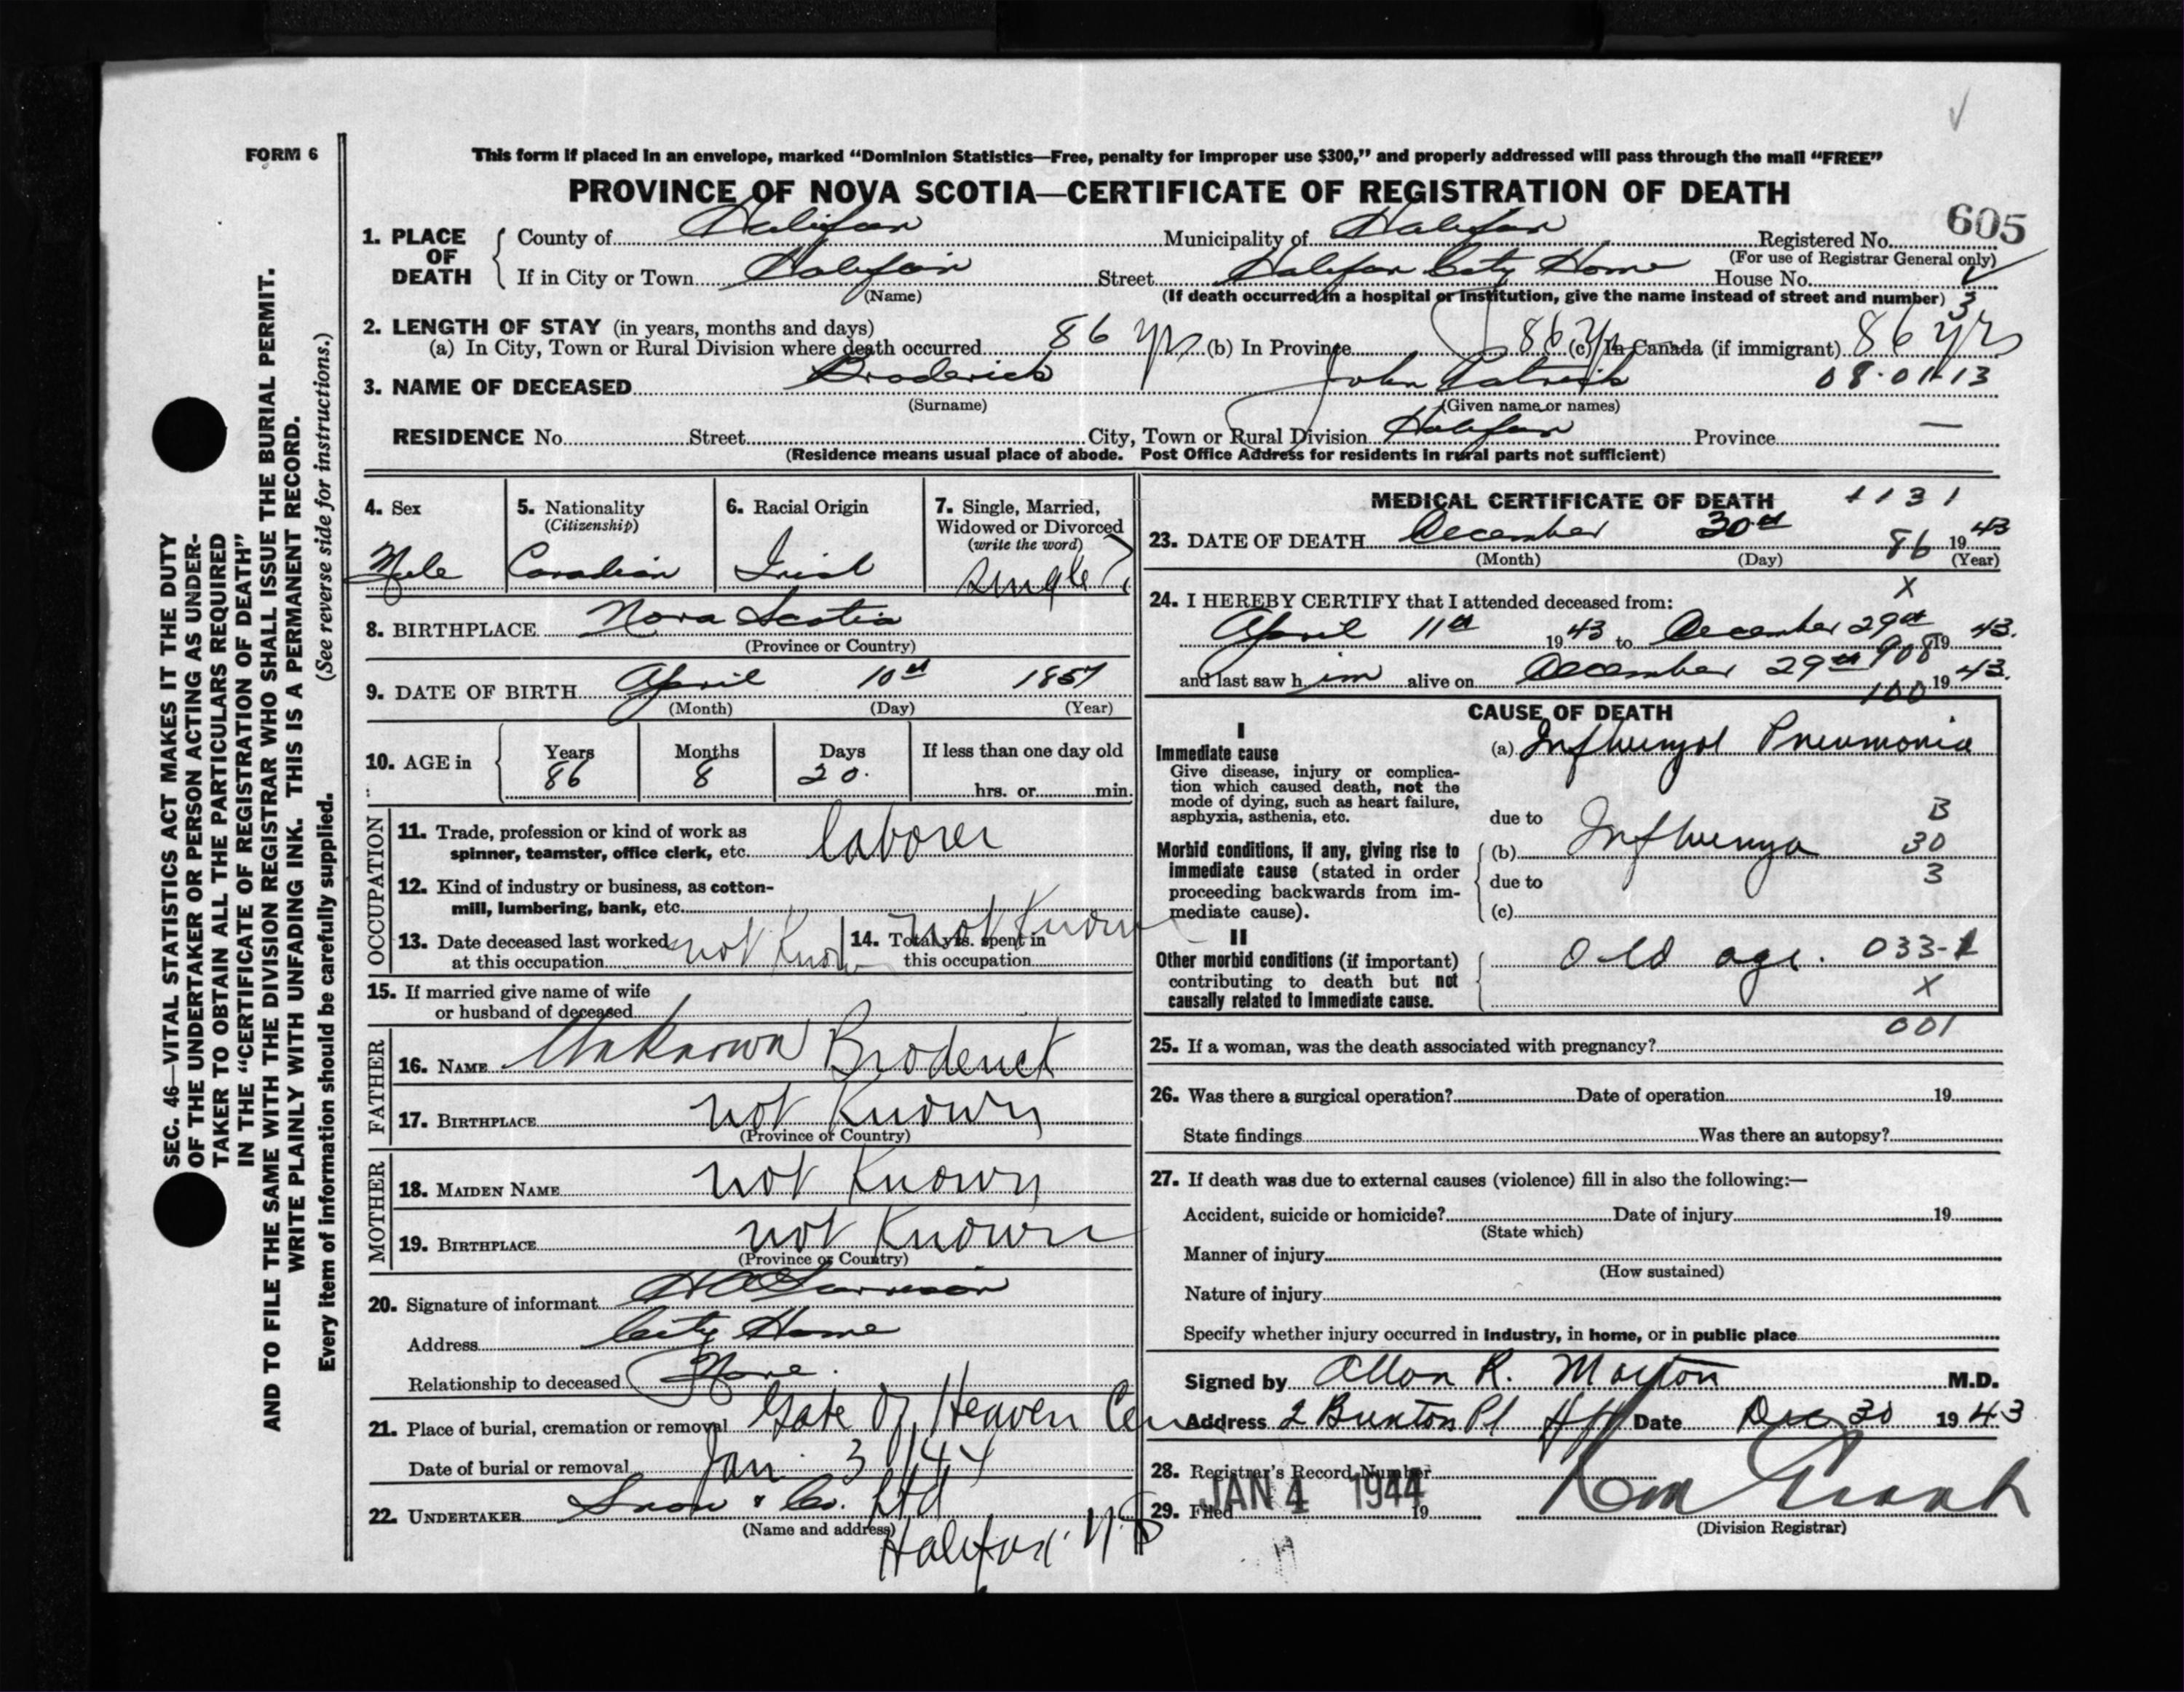 FORM 6
This form if placed in an envelope, marked “Dominion Statistics—Free, penalty for improper use $300,” and properly addressed will pass through the mail “FREE”
PROVINCE OF NOVA SCOTIA—CERTIFICATE OF REGISTRATION OF DEATH
605
1. PLACE OF DEATH County of Halifax Municipality of Halifax Registered No.
(For use of Registrar General only)
If in City or Town Halifax Street Halifax City Home House No.
(Name) (If death occurred in a hospital or institution, give the name instead of street and number) 3
2. LENGTH OF STAY (in years, months and days)
(a) In City, Town or Rural Division where death occurred 86 yrs (b) In Province 86 yrs (c) In Canada (if immigrant) 86 yrs
3. NAME OF DECEASED Broderick John Patrick 08-01-13
(Surname) (Given name or names)
RESIDENCE No. Street City, Town or Rural Division Halifax Province —
(Residence means usual place of abode. Post Office Address for residents in rural parts not sufficient)
4. Sex
Male
5. Nationality
(Citizenship)
Canadian
6. Racial Origin
Irish
7. Single, Married,
Widowed or Divorced
(write the word)
Single
8. BIRTHPLACE Nova Scotia
(Province or Country)
9. DATE OF BIRTH April 10th 1857
(Month) (Day) (Year)
10. AGE in Years Months Days If less than one day old
86 8 20.
hrs. or min.
OCCUPATION
11. Trade, profession or kind of work as
spinner, teamster, office clerk, etc. laborer
12. Kind of industry or business, as cotton-
mill, lumbering, bank, etc.
13. Date deceased last worked
at this occupation not Known
14. Total yrs. spent in
this occupation not Known
15. If married give name of wife
or husband of deceased
FATHER
16. NAME Unknown Broderick
17. BIRTHPLACE not Known
(Province or Country)
MOTHER
18. MAIDEN NAME not Known
19. BIRTHPLACE not Known
(Province or Country)
20. Signature of informant
Address City Home
Relationship to deceased None.
21. Place of burial, cremation or removal Gate Of Heaven Cem
Date of burial or removal Jan 3/44
22. UNDERTAKER Snow & Co. Ltd
(Name and address)
Halifax N.S
MEDICAL CERTIFICATE OF DEATH 1131
23. DATE OF DEATH December 30th 86 1943
(Month) (Day) (Year)
X
24. I HEREBY CERTIFY that I attended deceased from:
April 11th 1943 to December 29th 1943.
908
and last saw him alive on December 29th 1943.
100
CAUSE OF DEATH
I
Immediate cause
Give disease, injury or complica-
tion which caused death, not the
mode of dying, such as heart failure,
asphyxia, asthenia, etc.
(a) Influenzal Pneumonia
due to B
Morbid conditions, if any, giving rise to
immediate cause (stated in order
proceeding backwards from im-
mediate cause).
(b) Influenza 30
due to 3
(c)
II
Other morbid conditions (if important)
contributing to death but not
causally related to immediate cause.
Old age. 033-1
X
001
25. If a woman, was the death associated with pregnancy?
26. Was there a surgical operation? Date of operation 19
State findings Was there an autopsy?
27. If death was due to external causes (violence) fill in also the following:—
Accident, suicide or homicide? Date of injury 19
(State which)
Manner of injury
(How sustained)
Nature of injury
Specify whether injury occurred in industry, in home, or in public place
Signed by Allan R. Morton M.D.
Address 2 Buxton Pl Hfx Date Dec 30 1943
28. Registrar's Record Number
29. Filed JAN 4 1944 19
(Division Registrar)
SEC. 46—VITAL STATISTICS ACT MAKES IT THE DUTY
OF THE UNDERTAKER OR PERSON ACTING AS UNDER-
TAKER TO OBTAIN ALL THE PARTICULARS REQUIRED
IN THE “CERTIFICATE OF REGISTRATION OF DEATH”
AND TO FILE THE SAME WITH THE DIVISION REGISTRAR WHO SHALL ISSUE THE BURIAL PERMIT.
WRITE PLAINLY WITH UNFADING INK. THIS IS A PERMANENT RECORD.
Every item of information should be carefully supplied. (See reverse side for instructions.)